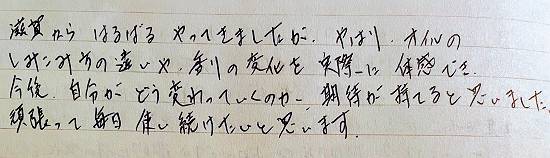 滋賀から はるばる やってきましたが、やはり、オイルの
しみこみ方の違いや、香りの変化を 実際に 体感でき、
今後、自分が どう変わっていくのか、期待が 持てると思いました。
頑張って 毎日 使い続けたいと思います。